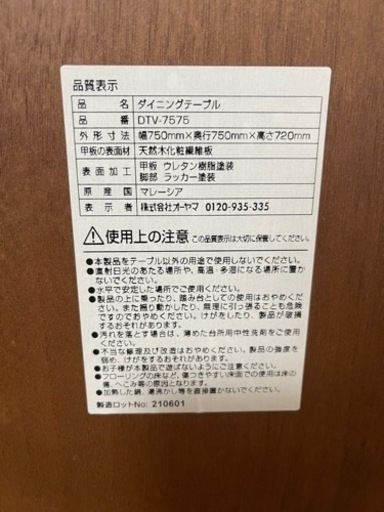 品質表示
品名 ダイニングテーブル
品番 DTV-7575
外形寸法 幅750mm×奥行750mm×高さ720mm
甲板の表面材 天然木化粧繊維板
表面加工 甲板 ウレタン樹脂塗装
脚部 ラッカー塗装
原産国 マレーシア
表示者 株式会社オーヤマ 0120-935-335
⚠使用上の注意 この品質表示は大切に保管してください。
●本製品をテーブル以外の用途で使用しないでください。
●直射日光のあたる場所や、高温・多湿になる場所に置か
ないでください。
●水平で安定した場所でご使用ください。
●製品の上に乗ったり、踏み台としての使用はおやめくだ
さい。また揺り動かしたり、無理に引きずることも危険
ですのでおやめください。けがをしたり、製品が破損
するおそれがあります。
●汚れを落とす場合は、薄めた台所用中性洗剤をご使用く
ださい。
●不当な修理及び改造はおやめください。製品の強度を
弱め、けがをするおそれがあります。
●お子様が本製品で遊ばないようにご注意ください。
●フローリングの床など、傷つきやすい床面での使用は床の
傷、へこみ等の原因となります。
●加熱した鍋、湯沸かし等を直接置かないでください。
製造ロットNo: 210601